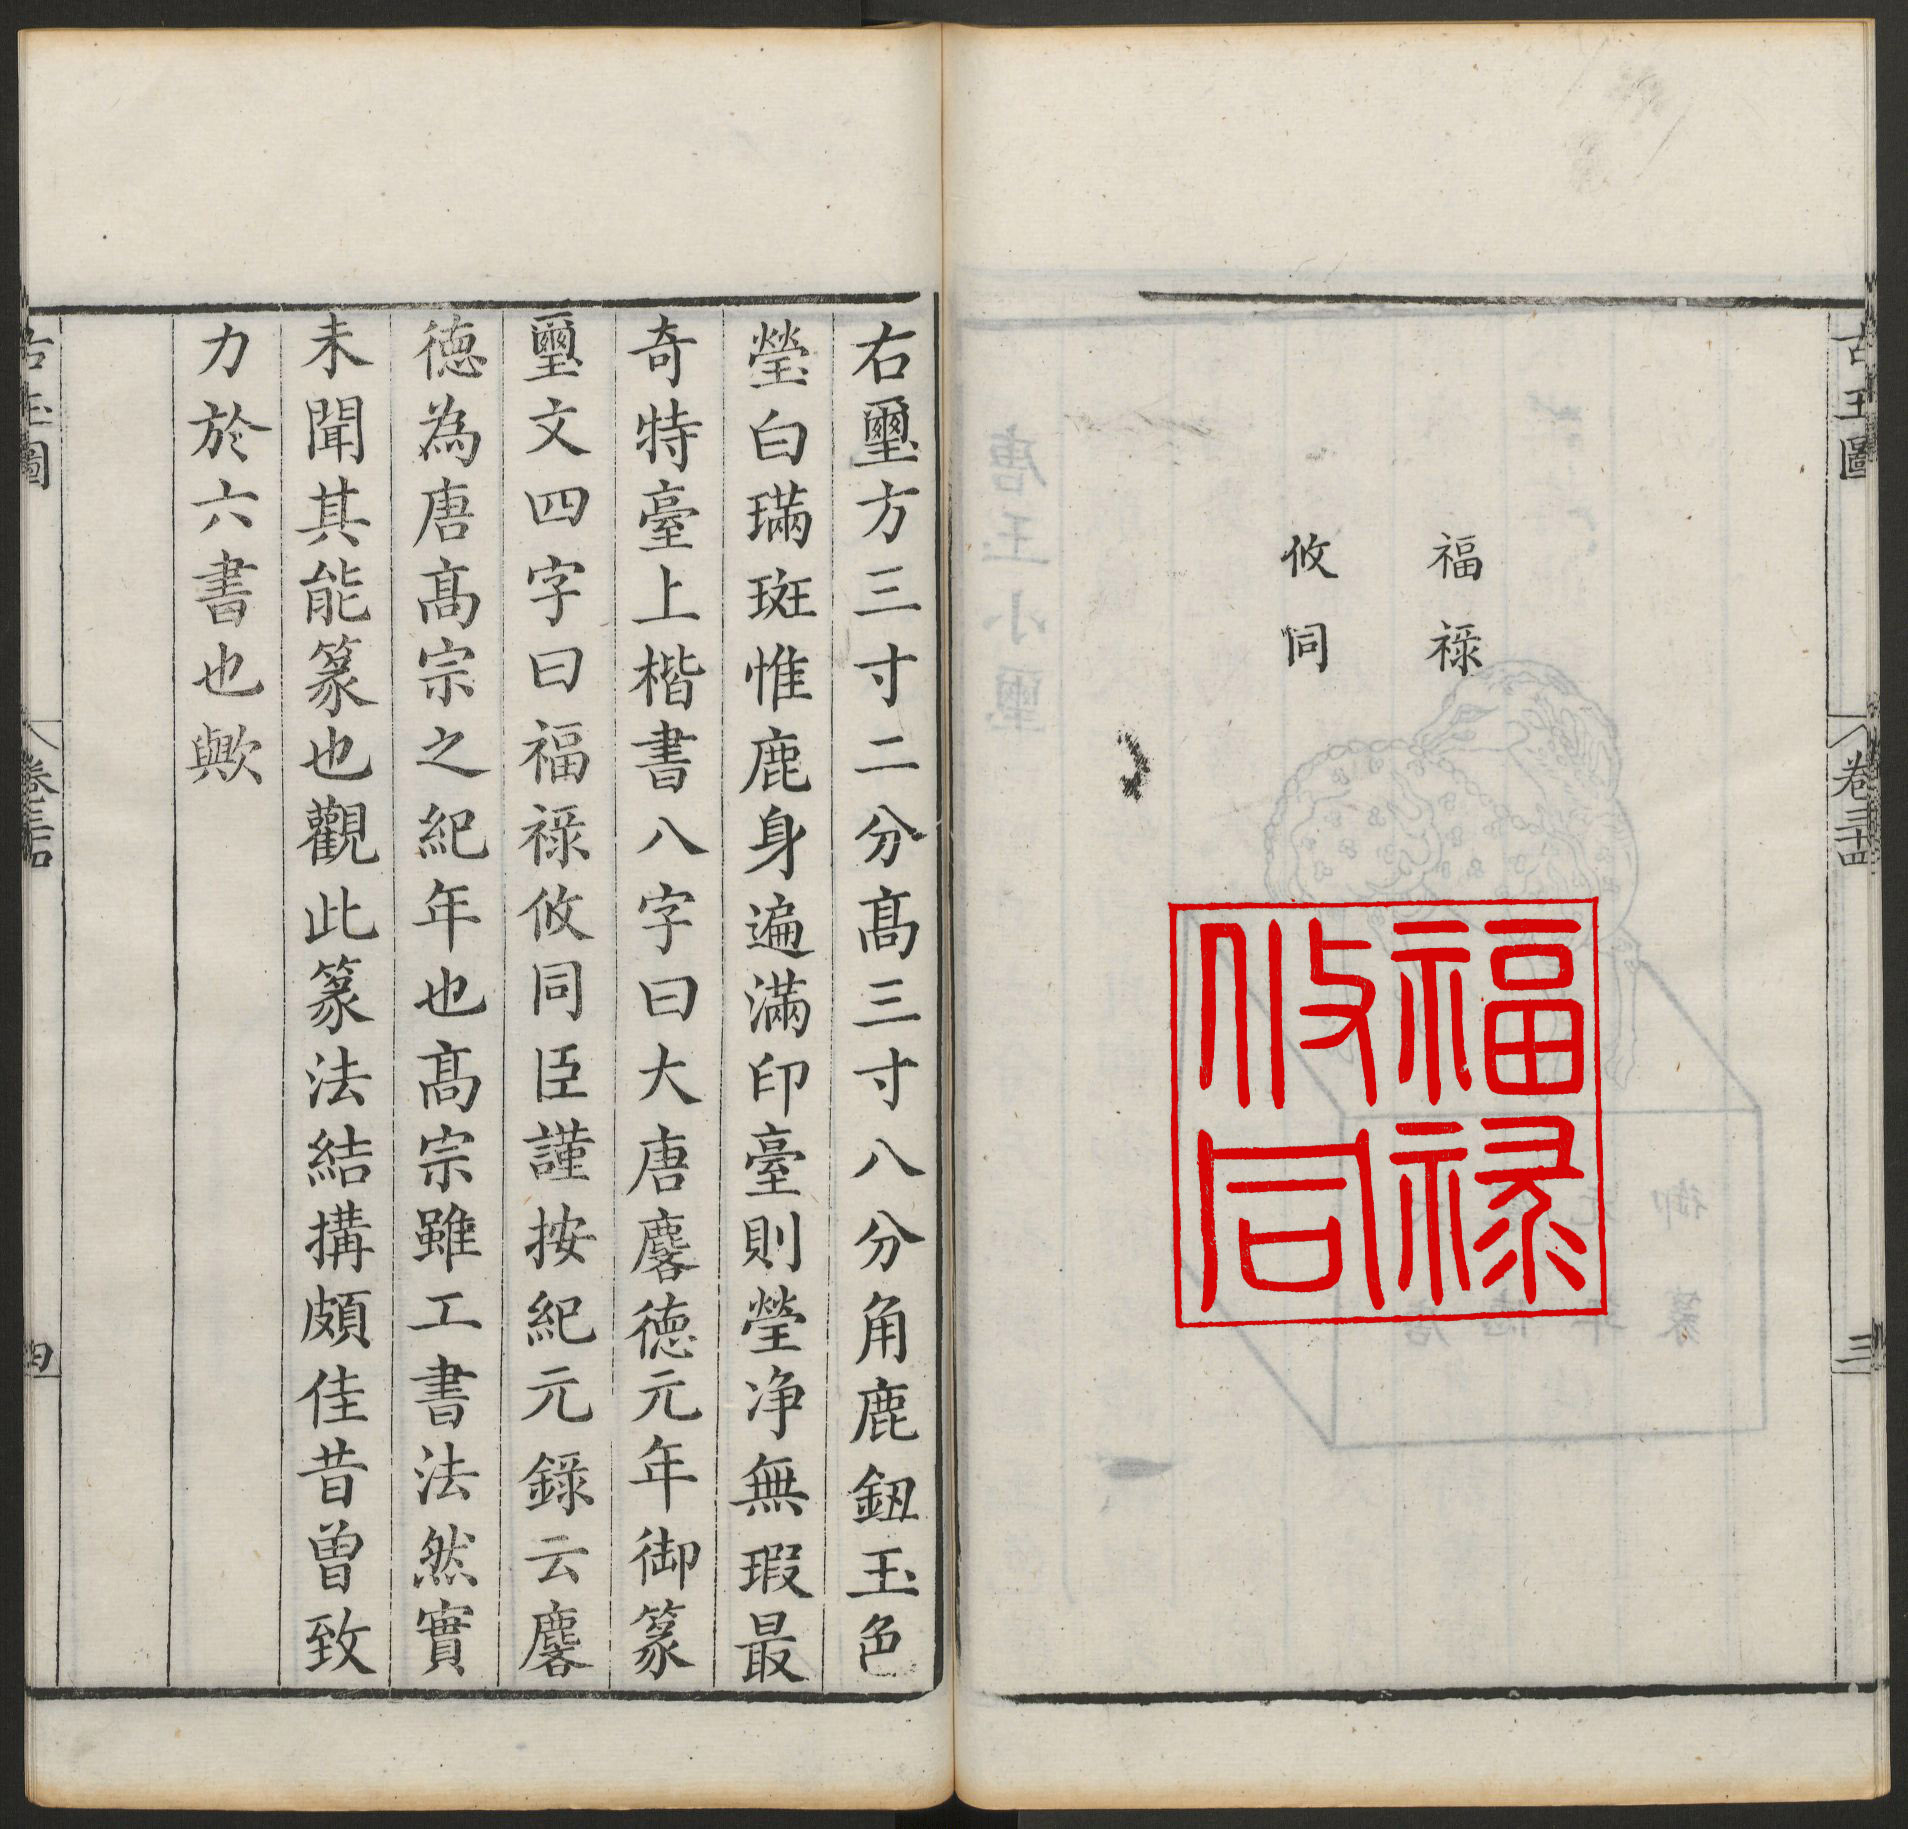 古玉圖
卷三十四
三
福祿
攸同
福祿
攸同
右璽方三寸二分高三寸八分角鹿鈕玉色
瑩白璊斑惟鹿身遍滿印臺則瑩净無瑕最
奇特臺上楷書八字曰大唐麐徳元年御篆
璽文四字曰福祿攸同臣謹按紀元錄云麐
徳為唐髙宗之紀年也髙宗雖工書法然實
未聞其能篆也觀此篆法結搆頗佳昔曾致
力於六書也歟
古玉圖
四